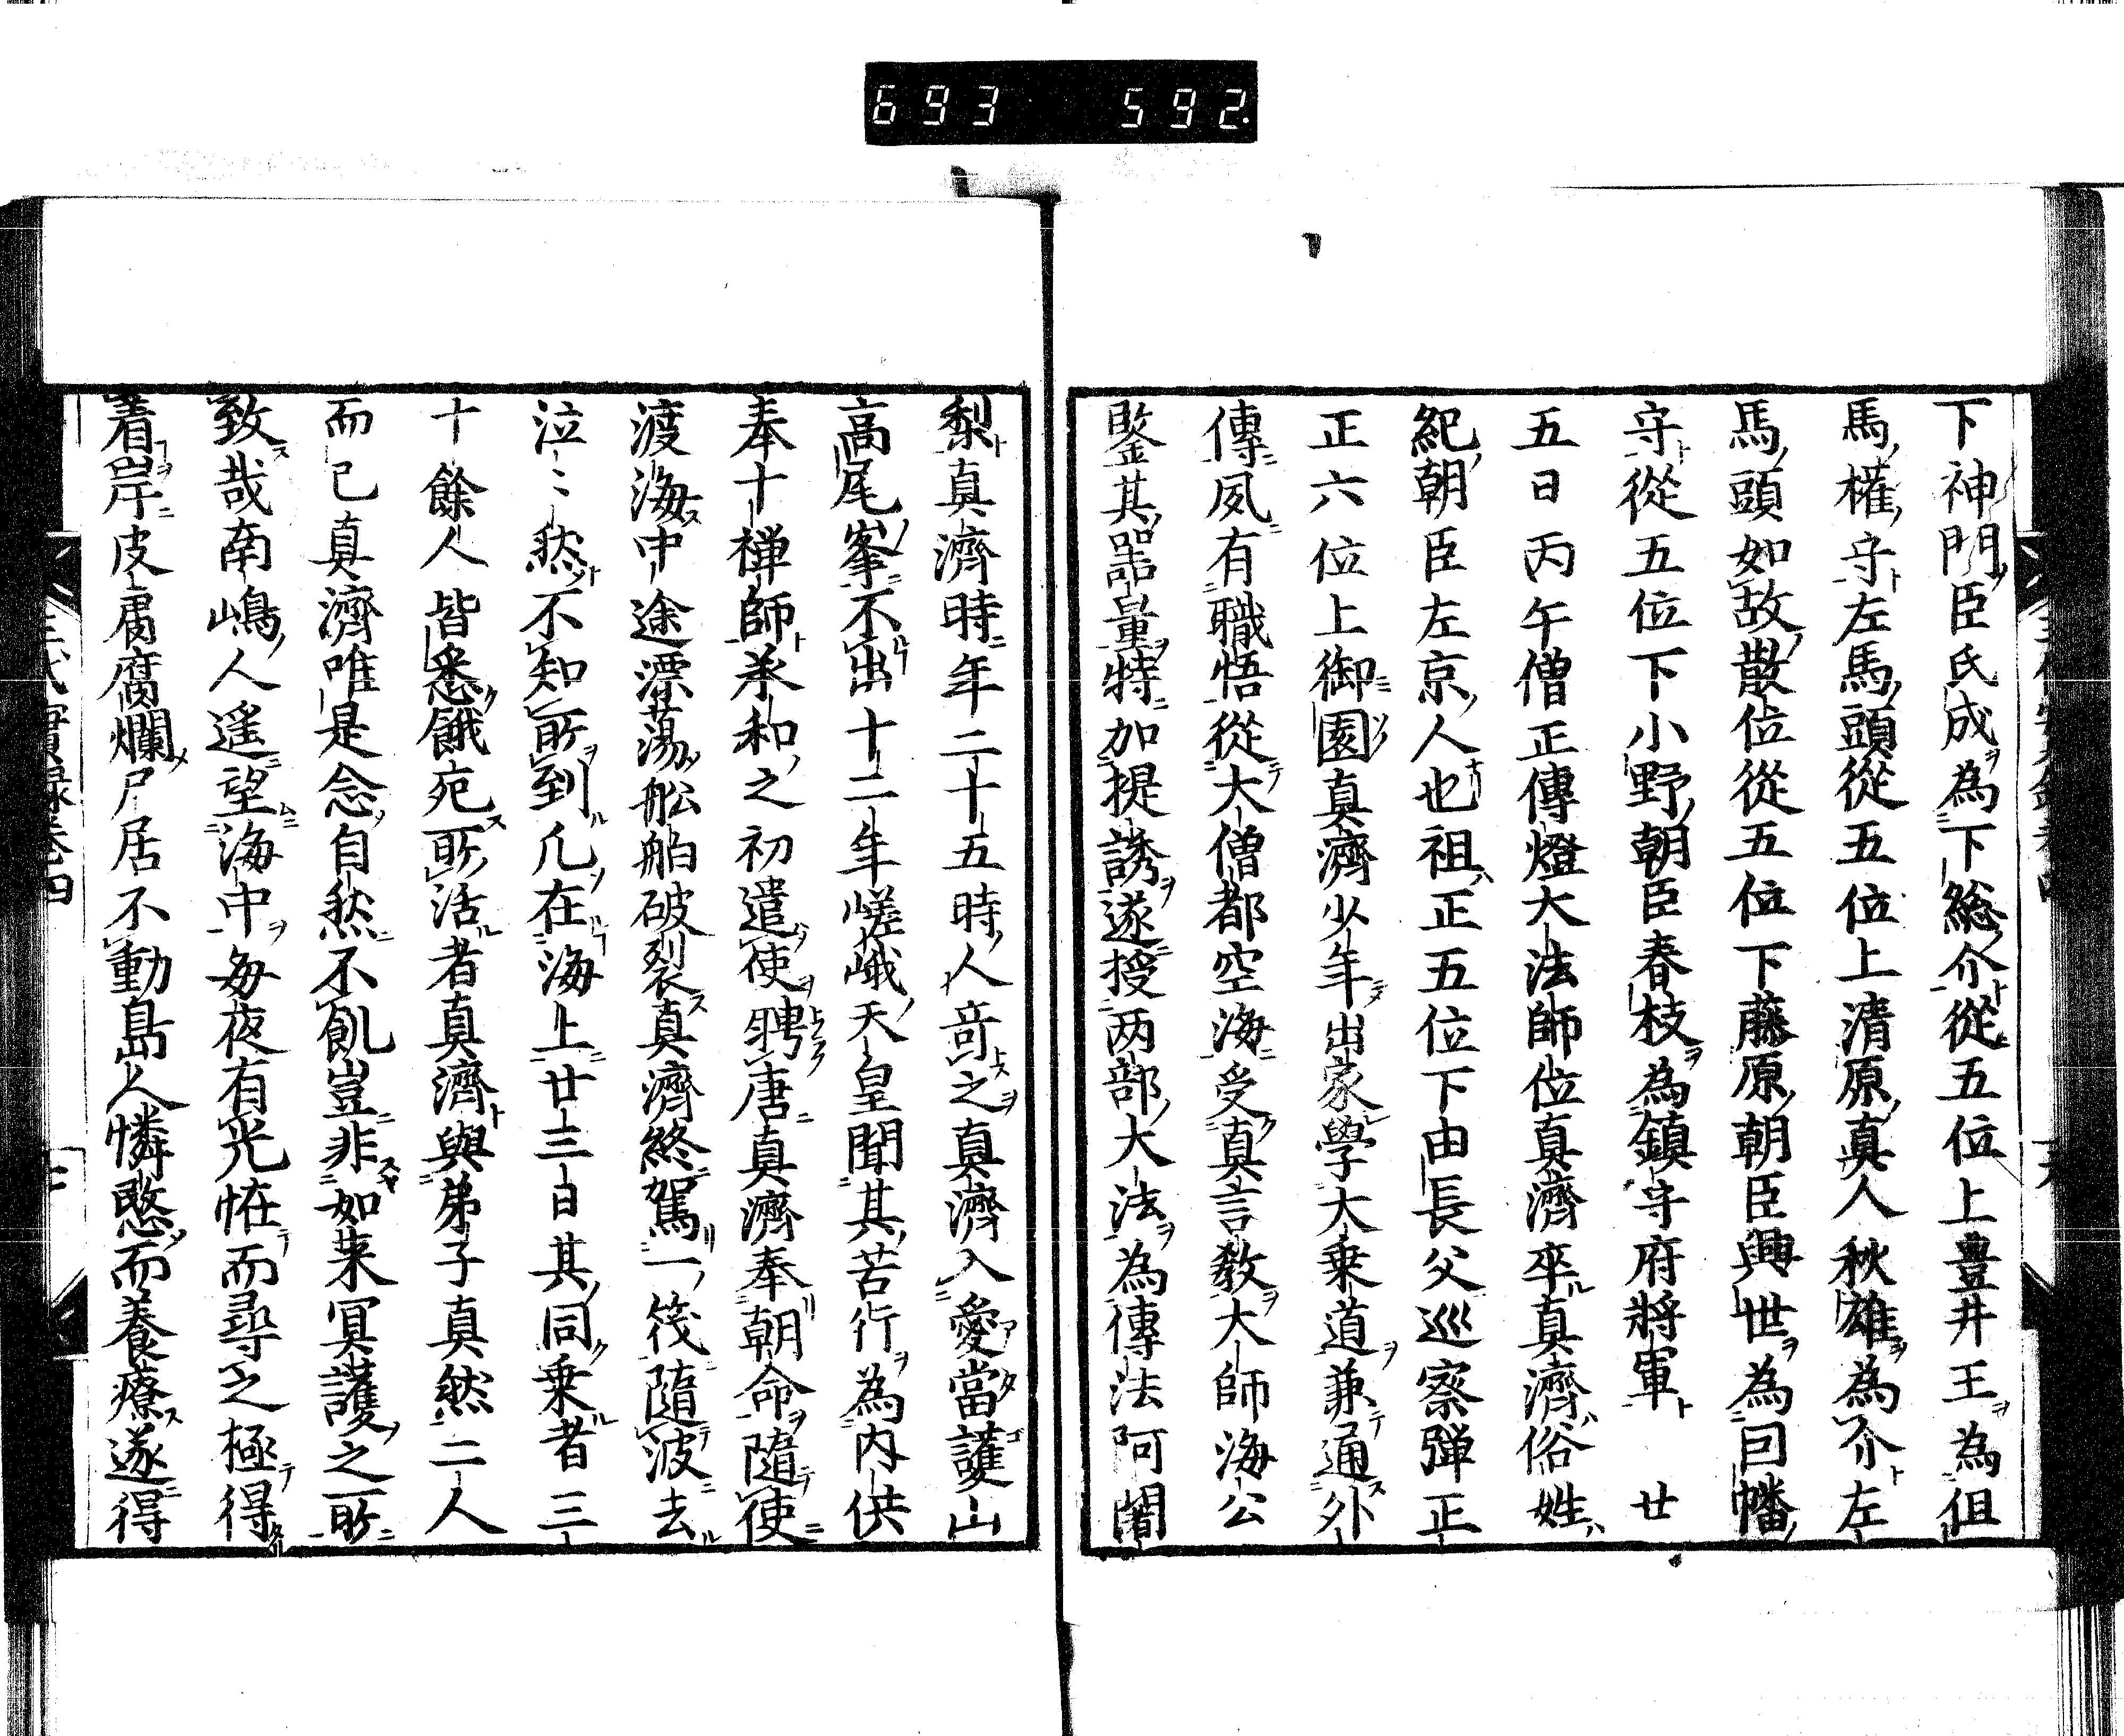 693 592
下神門臣氏成為下総介從五位上豊井王為但
馬權守左馬頭從五位上清原真人秋雄為介左
馬頭如故散位從五位下藤原朝臣興世為因幡
守從五位下小野朝臣春枝為鎮守府将軍 廿
五日丙午僧正傳燈大法師位真濟卒真濟俗姓
紀朝臣左京人也祖正五位下田長父巡察弾正
正六位上御園真濟少年出家學大乗道兼通外
傳夙有職悟從大僧都空海受真言教大師海公
鑒其噐量特加提誘遂授两部大法為傳法阿闍
梨真濟時年二十五時人竒之真濟入愛當護山
高尾峯不出十二年嵯峨天皇聞其苦行為内供
奉十禅師承和之初遣使聘唐真濟奉朝命隨使
渡海中途漂蕩舩舶破裂真濟終駕一筏隨波去
泣〻然不知所到凢在海上廿三日其同乗者三
十餘人皆悉餓死所活者真濟與弟子真然二人
而已真濟唯是念自然不飢豈非如来冥護之所
致哉南嶋人遥望海中毎夜有光恠而尋之極得
着岸皮膚腐爛尸居不動島人憐愍而養療遂得
三代實録巻四